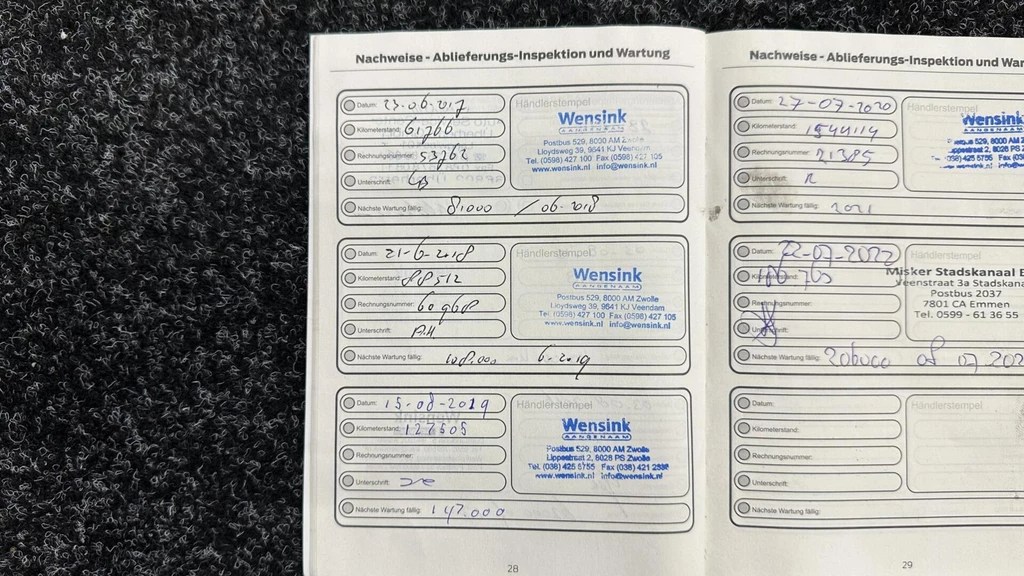 Nachweise - Ablieferungs-Inspektion und Wartung
Datum: 23-06-2017
Kilometerstand: 61766
Rechnungsnummer: 53762
Unterschrift:
Nächste Wartung fällig: 81000 / 06-2018
Händlerstempel
Wensink
AANGENAAM
Postbus 529, 8000 AM Zwolle
Lloydsweg 39, 9641 KJ Veendam
Tel. (0598) 427 100 Fax (0598) 427 105
www.wensink.nl info@wensink.nl
Datum: 21-6-2018
Kilometerstand: 88512
Rechnungsnummer: 60968
Unterschrift:
Nächste Wartung fällig: 108.000 6-2019
Händlerstempel
Wensink
Postbus 529, 8000 AM Zwolle
Lloydsweg 39, 9641 KJ Veendam
Tel. (0598) 427 100 Fax (0598) 427 105
www.wensink.nl info@wensink.nl
Datum: 15-08-2019
Kilometerstand: 127505
Rechnungsnummer:
Unterschrift:
Nächste Wartung fällig: 147.000
Händlerstempel
Wensink
AANGENAAM
Postbus 529, 8000 AM Zwolle
Lippestraat 2, 8028 PS Zwolle
Tel. (038) 425 5755 Fax (038) 421
www.wensink.nl info@wensink.nl
28
Nachweise - Ablieferungs-Inspektion und War
Datum: 27-07-2020
Kilometerstand:
Rechnungsnummer: 21385
Unterschrift:
Nächste Wartung fällig: 2021
Händlerstempel
Wensink
Datum: 22-07-2022
Kilometerstand:
Rechnungsnummer:
Unterschrift:
Nächste Wartung fällig: of 07 202
Händlerstempel
Misker Stadskanaal B
Veenstraat 3a Stadskana
Postbus 2037
7801 CA Emmen
Tel. 0599 - 61 36 55
Datum:
Kilometerstand:
Rechnungsnummer:
Unterschrift:
Nächste Wartung fällig:
Händlerstempel
29